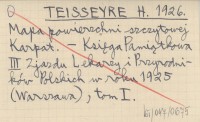 TEISSEYRE H. 1926.
Mapa powierzchni szczytowej
Karpat. – Księga Pamiątkowa
III Zjazdu Lekarzy i Przyrodni-
ków Polskich w roku 1925
(Warszawa), tom I.